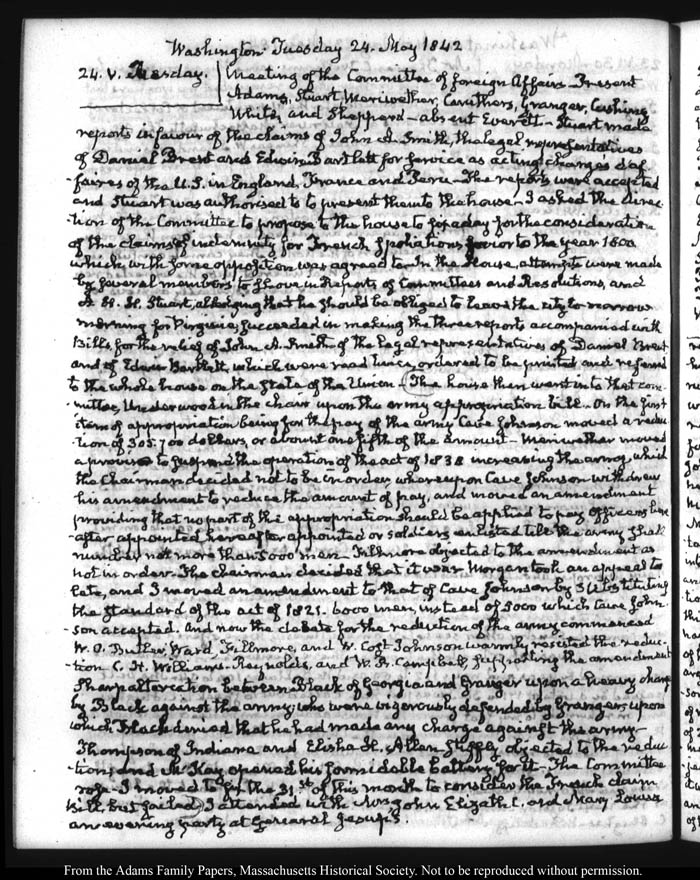 Washington Tuesday 24. May 1842
24. V. Tuesday.
Meeting of the Committee of foreign Affairs Present
Adams, Stuart Meriwether, Caruthers, Granger, Cushing
White, and Shepperd — absent Everett — Stuart made
reports in favour of the claims of John A. Smith, the legal representatives
of Daniel Brent and Edwin Bartlett for service as acting chargé's d'af
-faires of the U.S. in England, France and Peru — The reports were accepted
and Stuart was authorised to to present them to the house — I asked the direc
-tion of the Committee to propose to the house to fix a day for the consideration
of the claims of indemnity for French Spoliations prior to the year 1800
which with some opposition was agreed to — In the House, attempts were made
by several members to shove in Reports of Committees and Resolutions, and
A. H. H. Stuart, alledging that he should be obliged to leave the city to-morrow
morning for Virginia, succeeded in making the three reports accompanied with
Bills, for the relief of John A. Smith of the legal representatives of Daniel Brent
and of Edwin Bartlett, which were read twice, ordered to be printed and referred
to the whole house on the state of the Union — The house then went into that com
-mittee, Underwood in the chair upon the army appropriation bill — On the first
item of appropriation being for the pay of the army Cave Johnson moved a reduc
-tion of 305.700 dollars, or about one fifth of the amount — Meriwether moved
a proviso to suspend the operation of the act of 1838 increasing the army, which
the Chairman decided not to be in order, whereupon Cave Johnson withdrew
his amendment to reduce the amount of pay, and moved an amendment
providing that no part of the appropriation should be applied to pay officers here
-after appointed hereafter appointed or soldiers enlisted till the army shall
number not more than 5000 men — Fillmore objected to the amendment as
not in order — The chairman decided that it was Morgan took an appeal too
late, and I moved an amendment to that of Cave Johnson by substituting
the standard of the act of 1821. 6000 men, instead of 5000 which Cave John
-son accepted. And now the debate for the reduction of the army commenced
W. O. Butler, Ward, Fillmore, and W. Cost Johnson warmly resisted the reduc
-tion C. H. Williams. Reynolds, and W. B. Campbell, supporting the amendment
Sharp altercation between Black of Georgia and Granger upon a heavy charge
by Black against the army; who were vigorously defended by Granger, upon
which Black denied that he had made any charge against the army —
Thompson of Indiana and Elisha H. Allen stiffly objected to the reduc
-tion, and McKay opened his formidable battery for it — The Committee
rose. I moved to fix the 31st of this month to consider the French claim
bill, but failed. I attended with Mrs John, Elizabth C. and Mary Louisa
an evening party at General Jesup's.
From the Adams Family Papers, Massachusetts Historical Society. Not to be reproduced without permission.